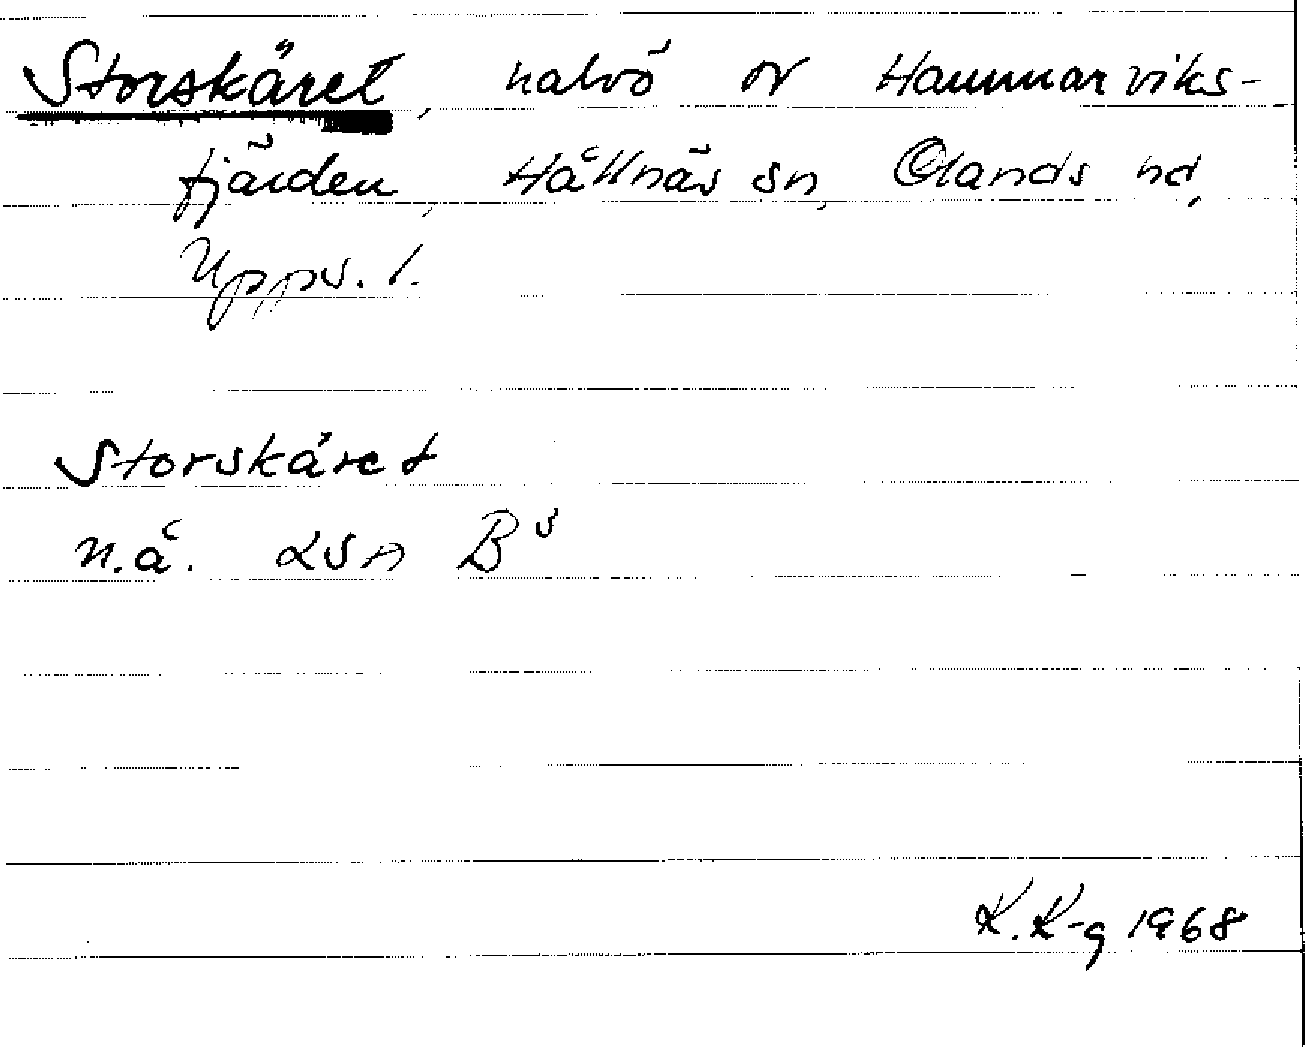 Storskäret, halvö N Hammarviks-
fjärden, Hållnäs sn, Olands hd,
Upps. l.
Storskäret
n.å. LSA B⁵
K. K-g 1968